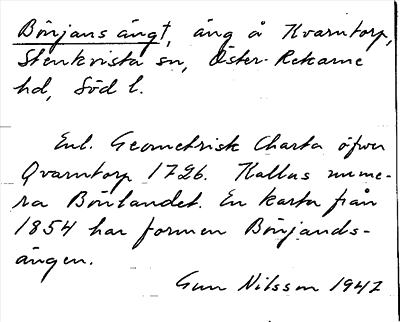 Börjans ängt, äng å Kvarntorp,
Stenkvista sn, Öster-Rekarne
hd, Söd l.
Enl. Geometrisk Charta öfver
Qvarntorp 1726. Kallas nume-
ra Bönlandet. En karta från
1854 har formen Börjands-
ängen.
Gun Nilsson 1947